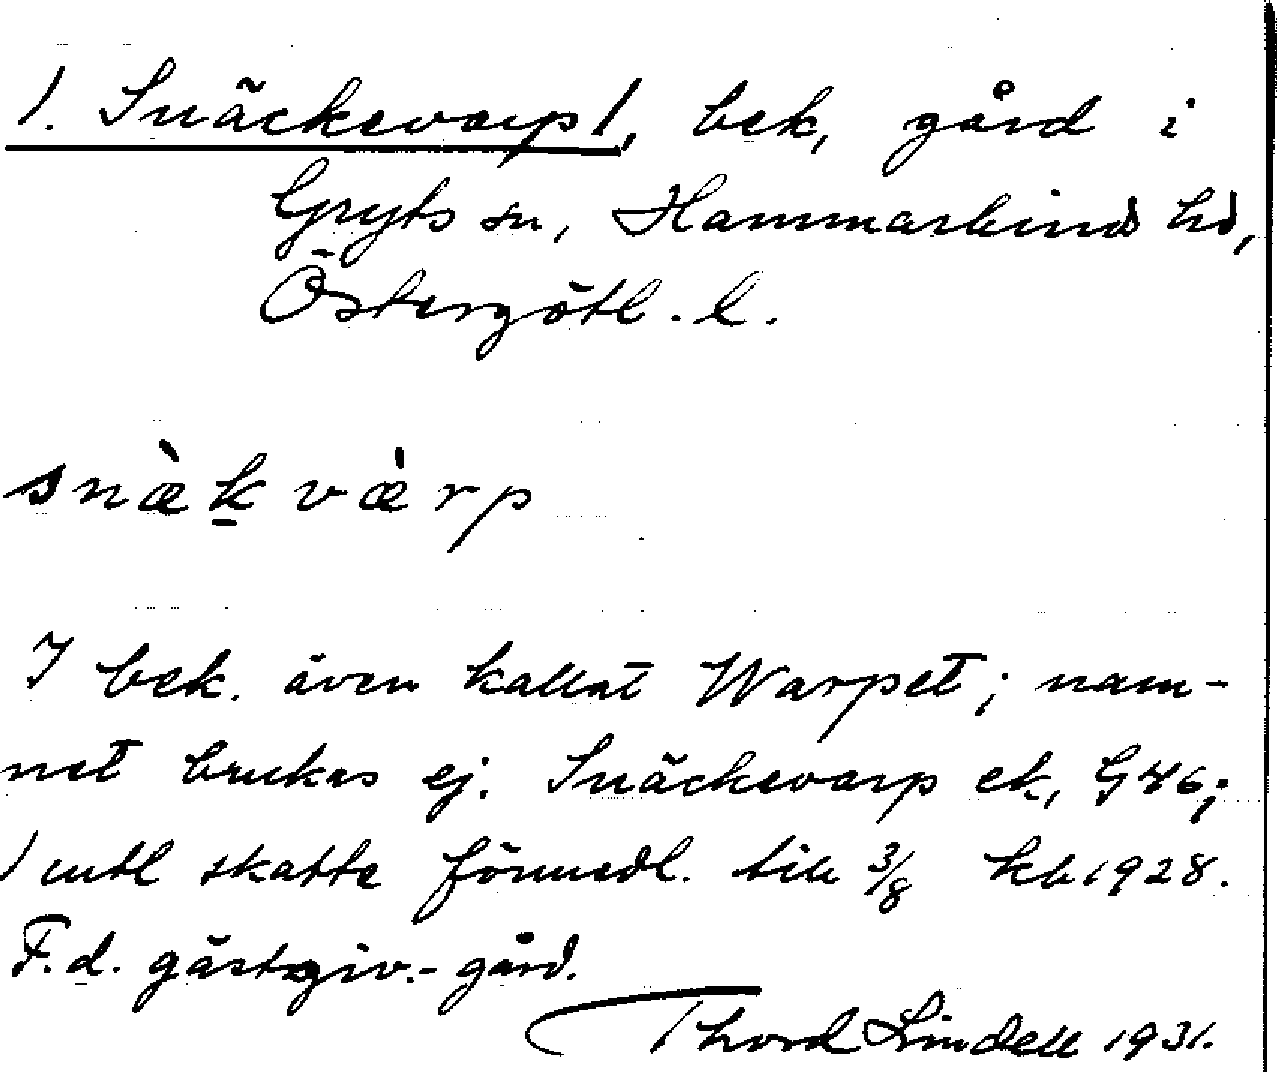 1. Snäckevarp 1, bek, gård i
Gryts sn, Hammarkinds hd,
Östergötl. l.
snæ̀k̠ væ̀rp
I bek. även kallat Warpet; nam-
net brukas ej. Snäckevarp ek, G46;
1 mtl skatte förmedl. till 3/8 kb 1928.
F.d. gästgiv.- gård.
Thord Lindell 1931.